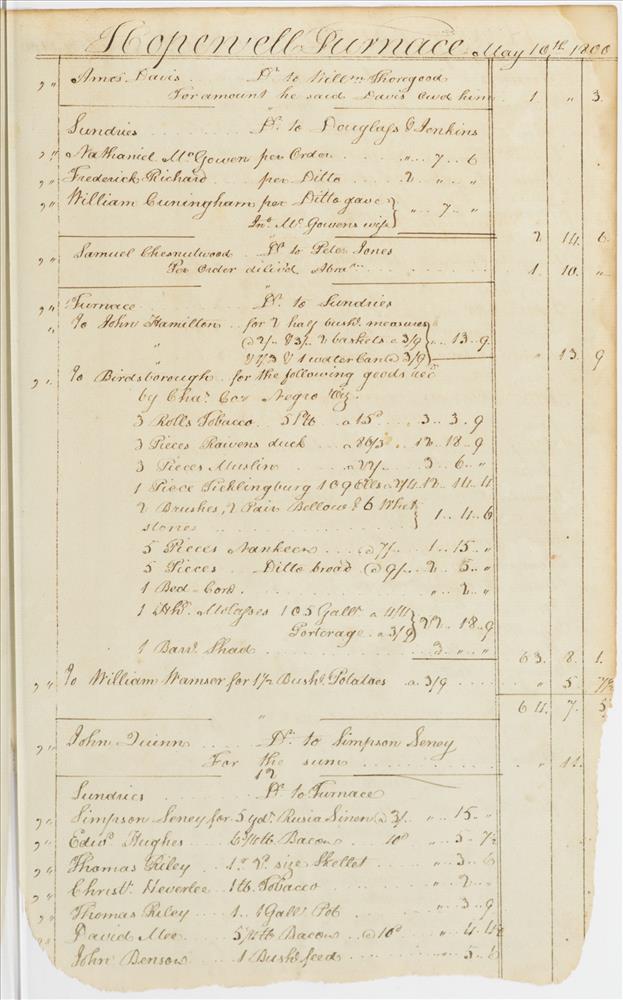 Hopewell Furnace May 10th 1800
" " Amos Davis . Dr to Willm Thoregood
For amount he said Davis owd him 1 " 3
Sundries . . . . Dr to Douglass & Jenkins
" " Nathaniel McGowen per Order . . . . . " .. 7 .. 6
" " Frederick Richard . . . per Ditto . . . 2 .. " .. "
" " William Cuningham per Ditto gave } " .. 7 .. "
Jno McGowens wife 2 14 6
" " Samuel Chesnutwood . Dr to Peter Jones
Per Order delivd Abram . . . . . 1 10 "
" " Furnace . . . . Dr to Sundries
" " To John Hamilton . for 2 half bushl measures
@ 2/. & 3/. 2 baskets @ 3/9 } " .. 13 .. 9
& 1/3 & 1 watter Can @ 3/9 " 13 9
" " To Birdsborough . for the following goods recd
by Chas Cox Negro Viz.
3 Rolls Tobacco . . 51 lb . a 15d . . 3 .. 3 .. 9
3 Pieces Raivens duck . . a 86/3 . . 12 .. 18 .. 9
3 Pieces Muslin . . . . a 22/. . . 3 .. 6 .. "
1 Piece Ticklingburg 109 Ells a 2/4 12 .. 14 .. 4
2 Brushes, 2 Pair Bellows & 6 Whet }
stones . . . . . 1 .. 4 .. 6
5 Pieces Nankeen . . . @ 7/. . . 1 .. 15 .. "
5 Pieces . . . Ditto broad @ 9/. . . 2 .. 5 .. "
1 Bed-Cord . . . . . " .. 2 .. "
1 Hhd Molasses 105 Galls a 4/4 }
Porterage . a 3/9 22 .. 18 .. 9
1 Barl Shad . . . . . 3 .. " .. " 63 . 8 . 1.
" " To William Wamser for 1 1/2 Bushl Potatoes . a 3/9 . . . " 5 7 1/2
64 . 7 . 5
" " John Quinn . . . . Dr to Simpson Seney
For the sum . . . . . " 11
12
Sundries . . . . Dr to Furnace
" " Simpson Seney for 5 yds Rusia Linen @ 3/. " .. 15 .. "
" " Edwd Hughes . . . 6 3/4 lb Bacon . . 10d " .. 5 .. 7 1/2
" " Thomas Riley . . . 1 .. 2d size Skellet . . . " .. 3 .. 6
" " Christr Heverlee 1 lb Tobacco . . . . " .. 2 .. "
" " Thomas Riley . . . 1 . 1 Gall Pot . . . . " .. 3 .. 9
" " David Mee . . . 5 1/4 lb Bacon . . @ 10d " .. 4 .. 4 1/2
John Benson . . . 1 Bushl feed . . . . " .. 5 .. 6